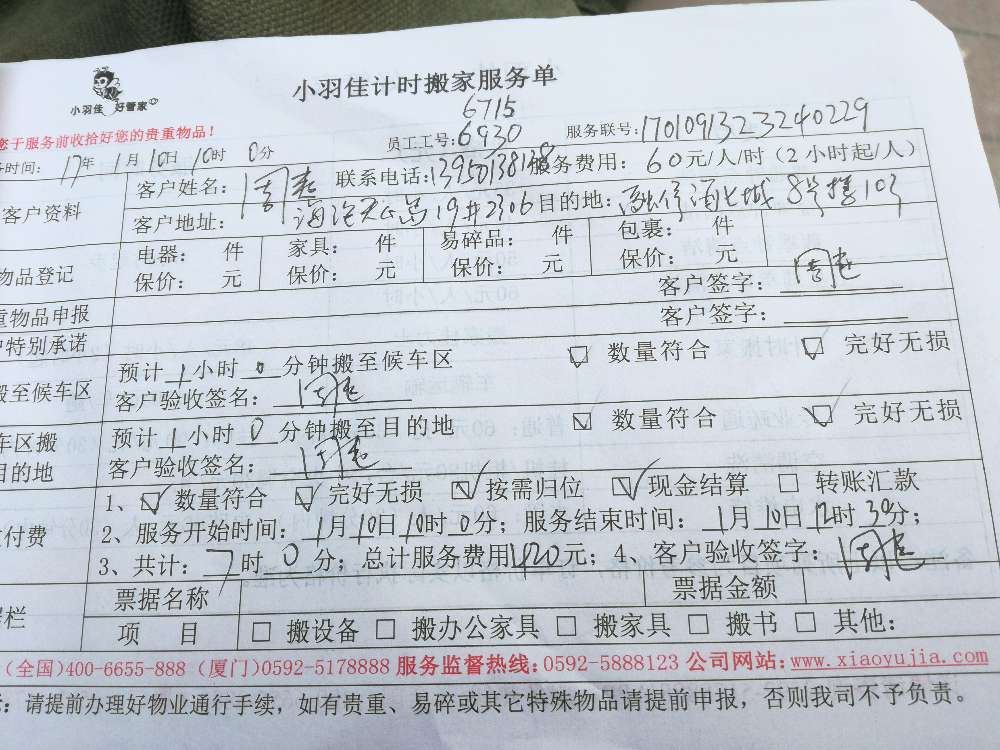 小羽佳 好管家
小羽佳计时搬家服务单
6715
您于服务前收拾好您的贵重物品！
员工工号：6930 服务联号：1701091323240229
务时间：17年1月10日10时0分
客户资料
客户姓名： 联系电话： 服务费用：60元/人/时（2小时起/人）
客户地址： 19#2306 目的地： 8号楼103
物品登记
电器： 件 家具： 件 易碎品： 件 包裹： 件
保价： 元 保价： 元 保价： 元 保价： 元
重物品申报
客户签字：
户特别承诺
客户签字：
搬至候车区
预计1小时0分钟搬至候车区 ☑ 数量符合 ☑ 完好无损
客户验收签名：
车区搬
目的地
预计1小时0分钟搬至目的地 ☑ 数量符合 ☑ 完好无损
客户验收签名：
付费
1、☑ 数量符合 ☑ 完好无损 ☑ 按需归位 ☑ 现金结算 □ 转账汇款
2、服务开始时间：1月10日10时0分；服务结束时间：1月10日12时30分；
3、共计：7时0分；总计服务费用420元；4、客户验收签字：
栏
票据名称 票据金额
项 目 □ 搬设备 □ 搬办公家具 □ 搬家具 □ 搬书 □ 其他：
(全国)400-6655-888 (厦门)0592-5178888 服务监督热线：0592-5888123 公司网站：www.xiaoyujia.com
：请提前办理好物业通行手续，如有贵重、易碎或其它特殊物品请提前申报，否则我司不予负责。